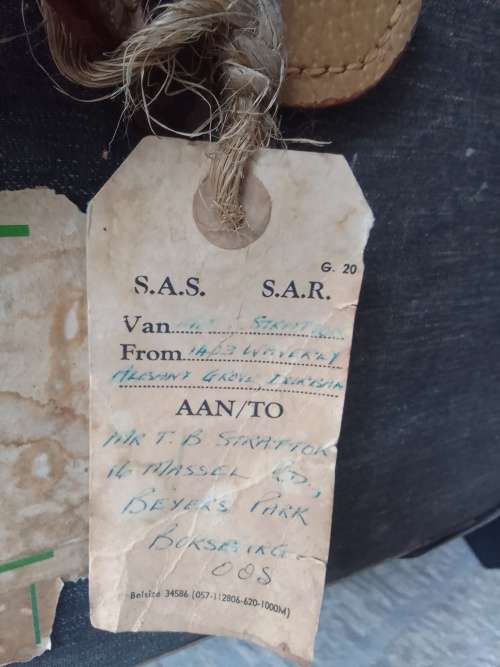 G. 20
S.A.S. S.A.R.
Van Mr STRATTON
From 1403 WAVERLY
PLESANT GROVE, DURBAN
AAN/TO
MR T. B STRATTON
16 MASSEL RD,
BEYERS PARK
BOKSBURG
OOS
Belsize 34586 (057-112806-620-1000M)